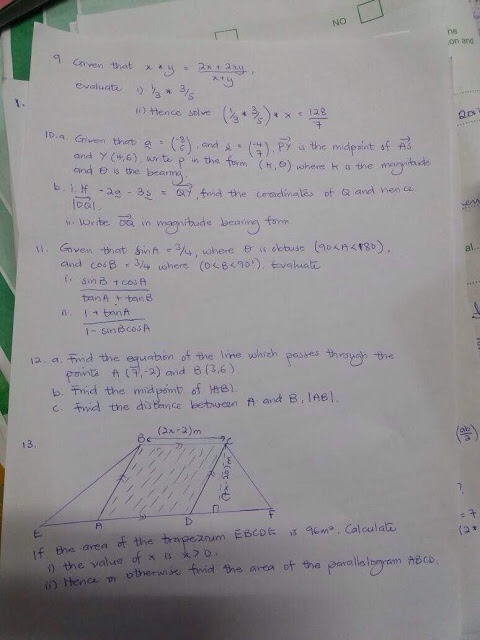 NO
9 Given that x * y = 2x + 2xy / x+y,
evaluate i) 1/3 * 3/5
ii) Hence solve (1/3 * 3/5) * x = 128/7
10.a. Given that a = (-8 ), and s = (-4 7), PY is the midpoint of AS
and Y (4,6), write p in the form (k, θ) where k is the magnitude
and θ is the bearing.
b. i. If -2a - 3s = QY, find the coordinates of Q and hence
|OQ|.
ii. Write OQ in magnitude bearing form.
11. Given that sinA = 3/4, where θ is obtuse (90<A<180),
and cosB = 3/4 where (0<B<90°). Evaluate
i. sinB + cosA
tanA + tanB
ii. 1 + tanA
1 - sinBcosA
12. a. Find the equation of the line which passes through the
points A (7,-2) and B (3,6).
b. Find the midpoint of |AB|.
c. Find the distance between A and B, |AB|.
13.
(2x-2)m
B C
(7x-20)m
E A D F
If the area of the trapezium EBCDE is 96m². Calculate
i) the value of x is x > 0.
ii) Hence or otherwise find the area of the parallelogram ABCD.
1.
(ab/2)
?
= 7
(2*